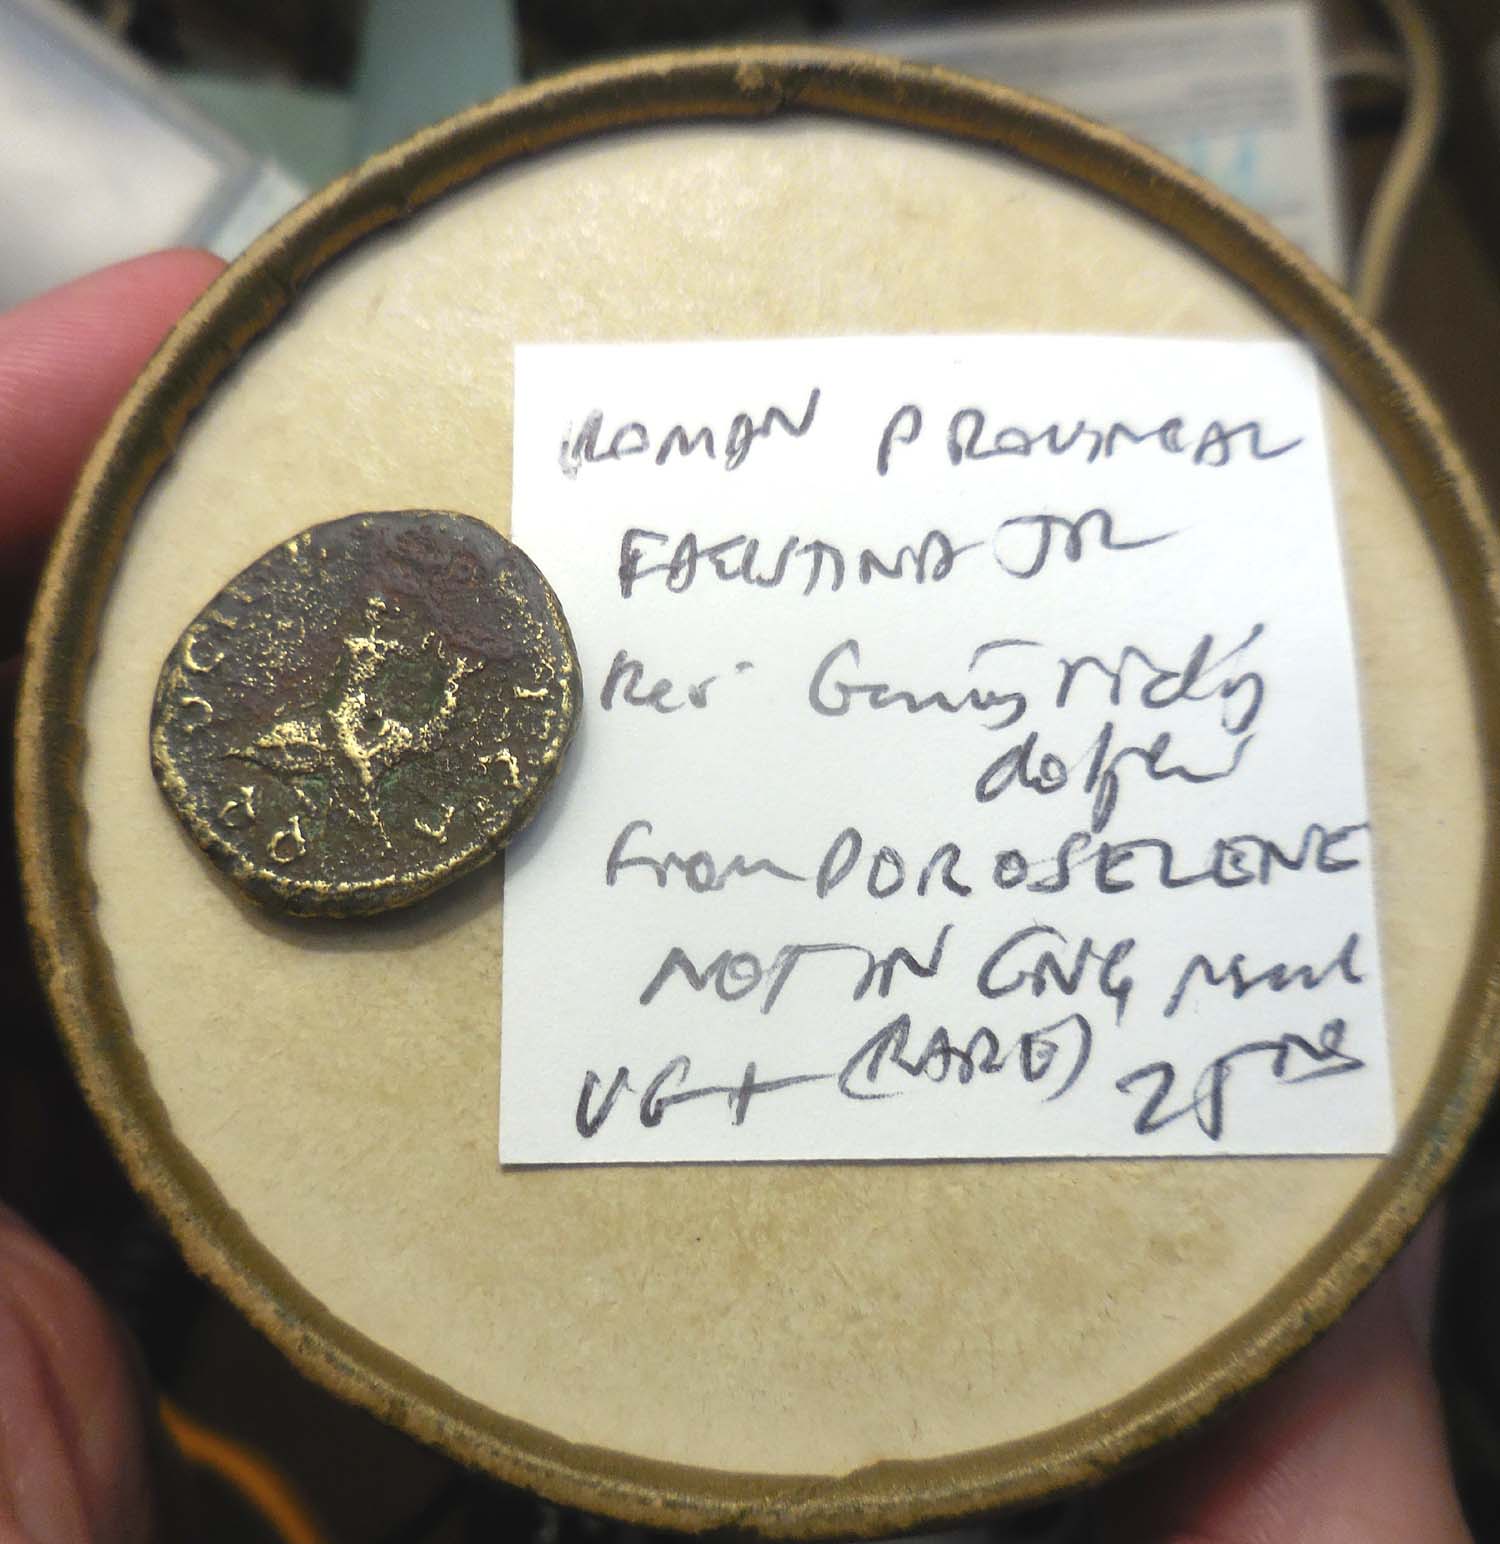 ROMAN PROVINCAL
FAUSTINA JR
Rev Genius riding
dolphin
From POROSELENE
NOT IN CNG, 
VG+ (RARE) 25